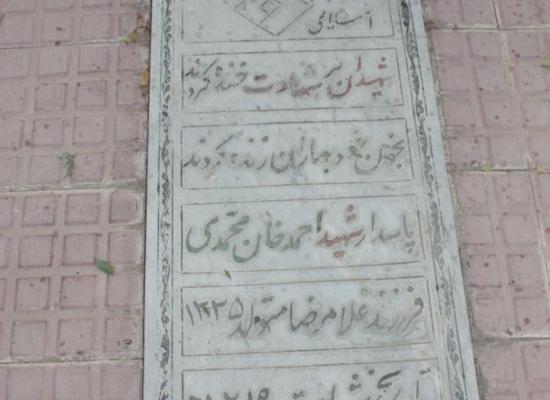 اسلامی
شهیدان بر شهادت خنده کردند
بخون خود بهاران زنده کردند
پاسدار شهید احمد خان محمدی
فرزند غلامرضا متولد ۱۳۳۵
تاریخ شهادت